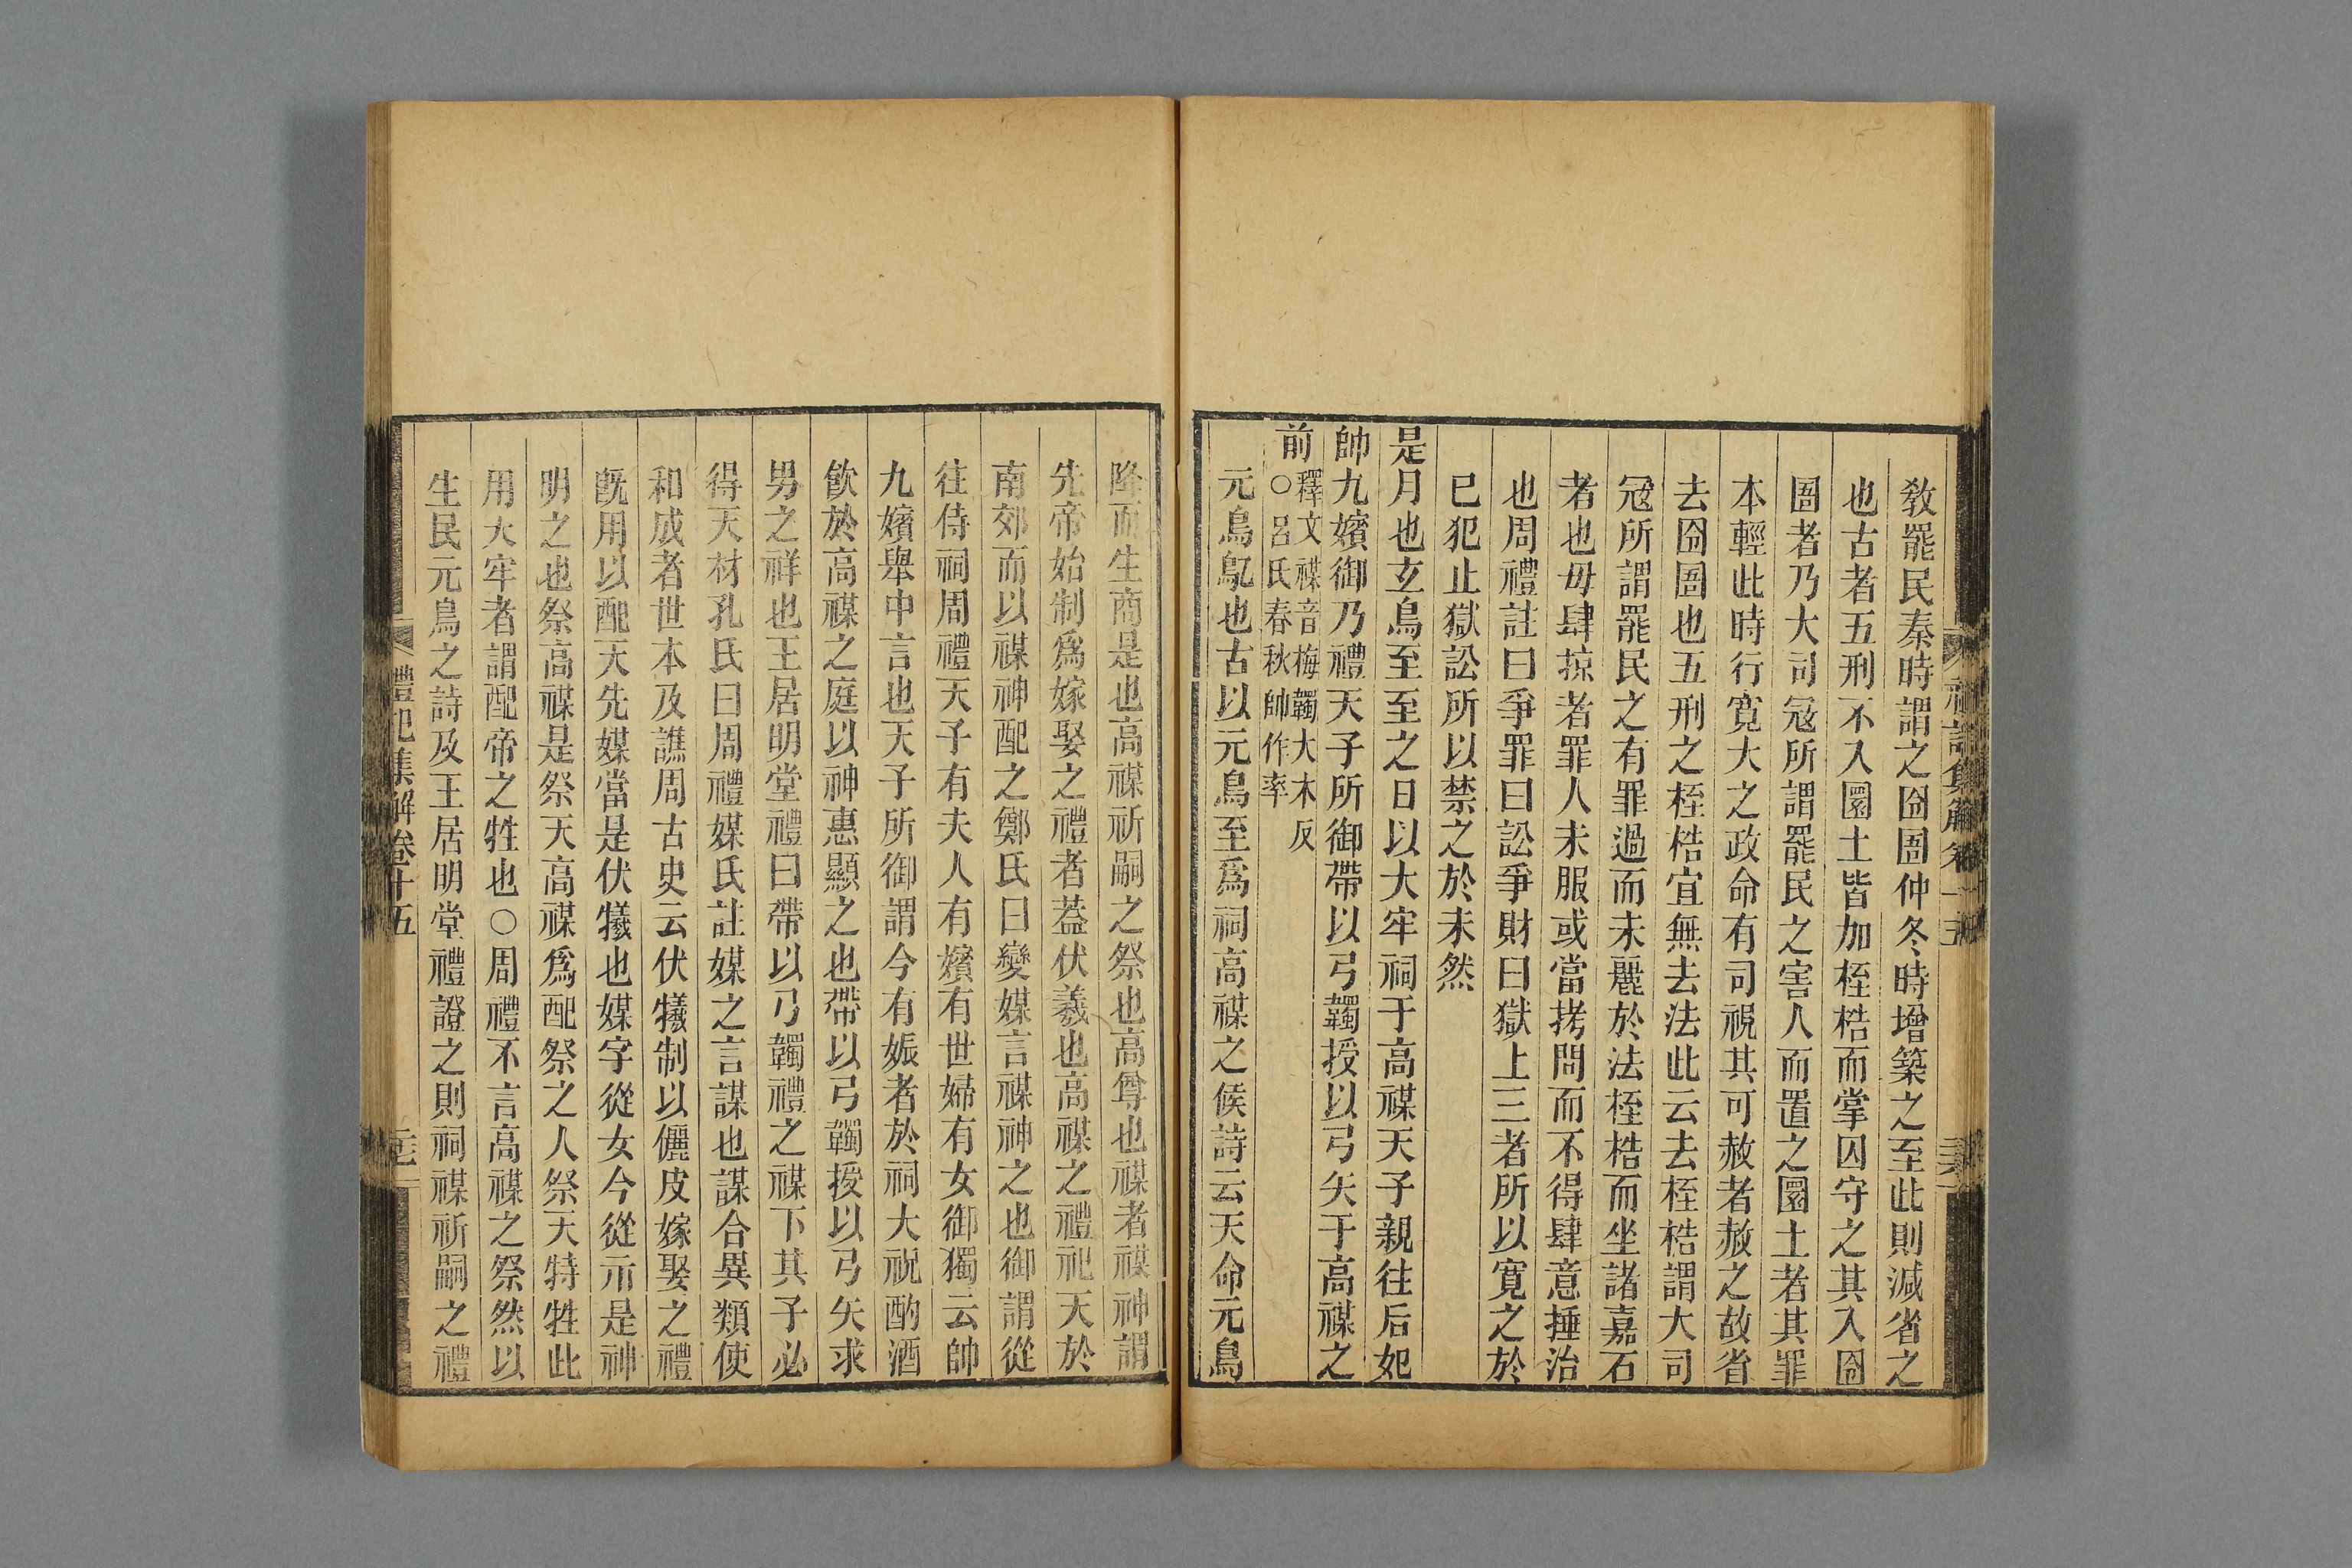 敎罷民秦時謂之囹圄仲冬時增築之至此則減省之
也古者五刑不入圜土皆加桎梏而掌囚守之其入囹
圄者乃大司寇所謂罷民之害人而置之圜土者其罪
本輕此時行寬大之政命有司視其可赦者赦之故省
去囹圄也五刑之桎梏宜無去法此云去桎梏謂大司
寇所謂罷民之有罪過而未麗於法桎梏而坐諸嘉石
者也毋肆掠者罪人未服或當拷問而不得肆意捶治
也周禮註曰爭罪曰訟爭財曰獄上三者所以寬之於
已犯止獄訟所以禁之於未然
是月也玄鳥至至之日以大牢祠于高禖天子親往后妃
帥九嬪御乃禮天子所御帶以弓韣授以弓矢于高禖之
前
釋文禖音梅韣大木反
○呂氏春秋帥作率
元鳥鳦也古以元鳥至爲祠高禖之候詩云天命元鳥
降而生商是也高禖祈嗣之祭也高尊也禖者禖神謂
先帝始制爲嫁娶之禮者葢伏羲也高禖之禮祀天於
南郊而以禖神配之鄭氏曰變媒言禖神之也御謂從
往侍祠周禮天子有夫人有嬪有世婦有女御獨云帥
九嬪舉中言也天子所御謂今有娠者於祠大祝酌酒
飮於高禖之庭以神惠顯之也帶以弓韣授以弓矢求
男之祥也王居明堂禮曰帶以弓韣禮之禖下其子必
得天材孔氏曰周禮媒氏註媒之言謀也謀合異類使
和成者世本及譙周古史云伏犧制以儷皮嫁娶之禮
旣用以配天先媒當是伏犧也媒字從女今從示是神
明之也祭高禖是祭天高禖爲配祭之人祭天特牲此
用大牢者謂配帝之牲也○周禮不言高禖之祭然以
生民元鳥之詩及王居明堂禮證之則祠禖祈嗣之禮
禮記集解卷十五